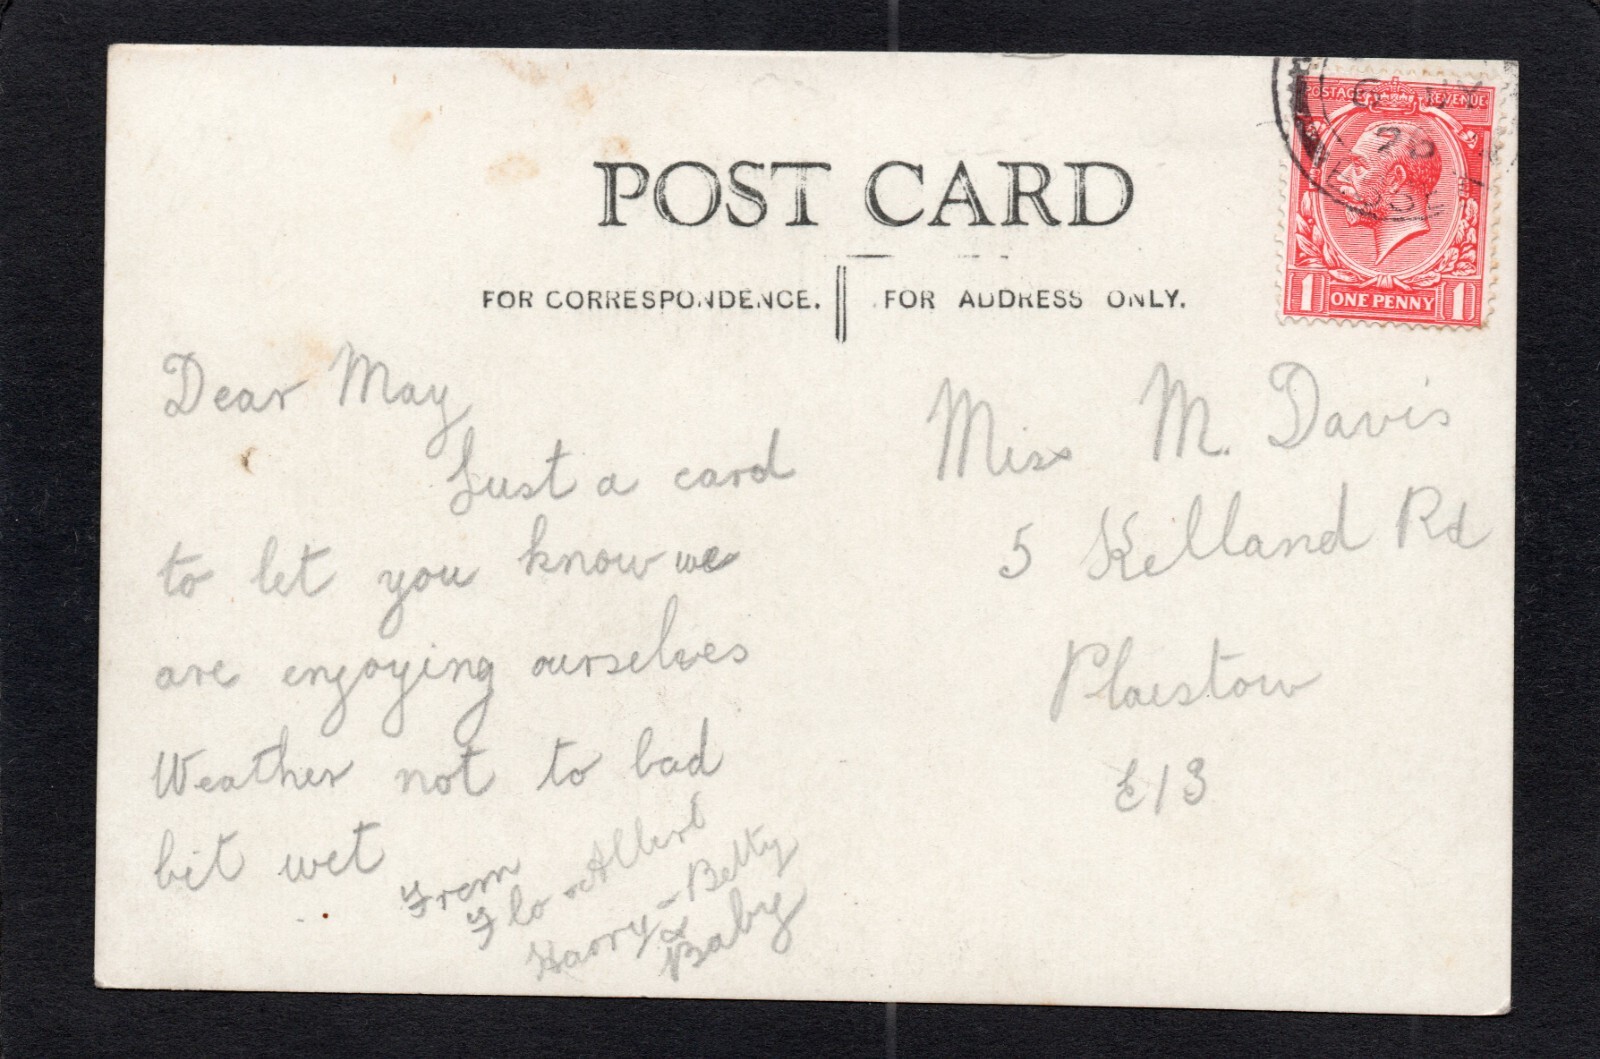 POST CARD
FOR CORRESPONDENCE.
FOR ADDRESS ONLY.
POSTAGE REVENUE
1 ONE PENNY 1
Dear May
Just a card
to let you know we
are enjoying ourselves
Weather not to bad
bit wet
From
Flo & Albert
Harry - Betty
& Baby
Miss M. Davis
5 Kelland Rd
Plaistow
E13